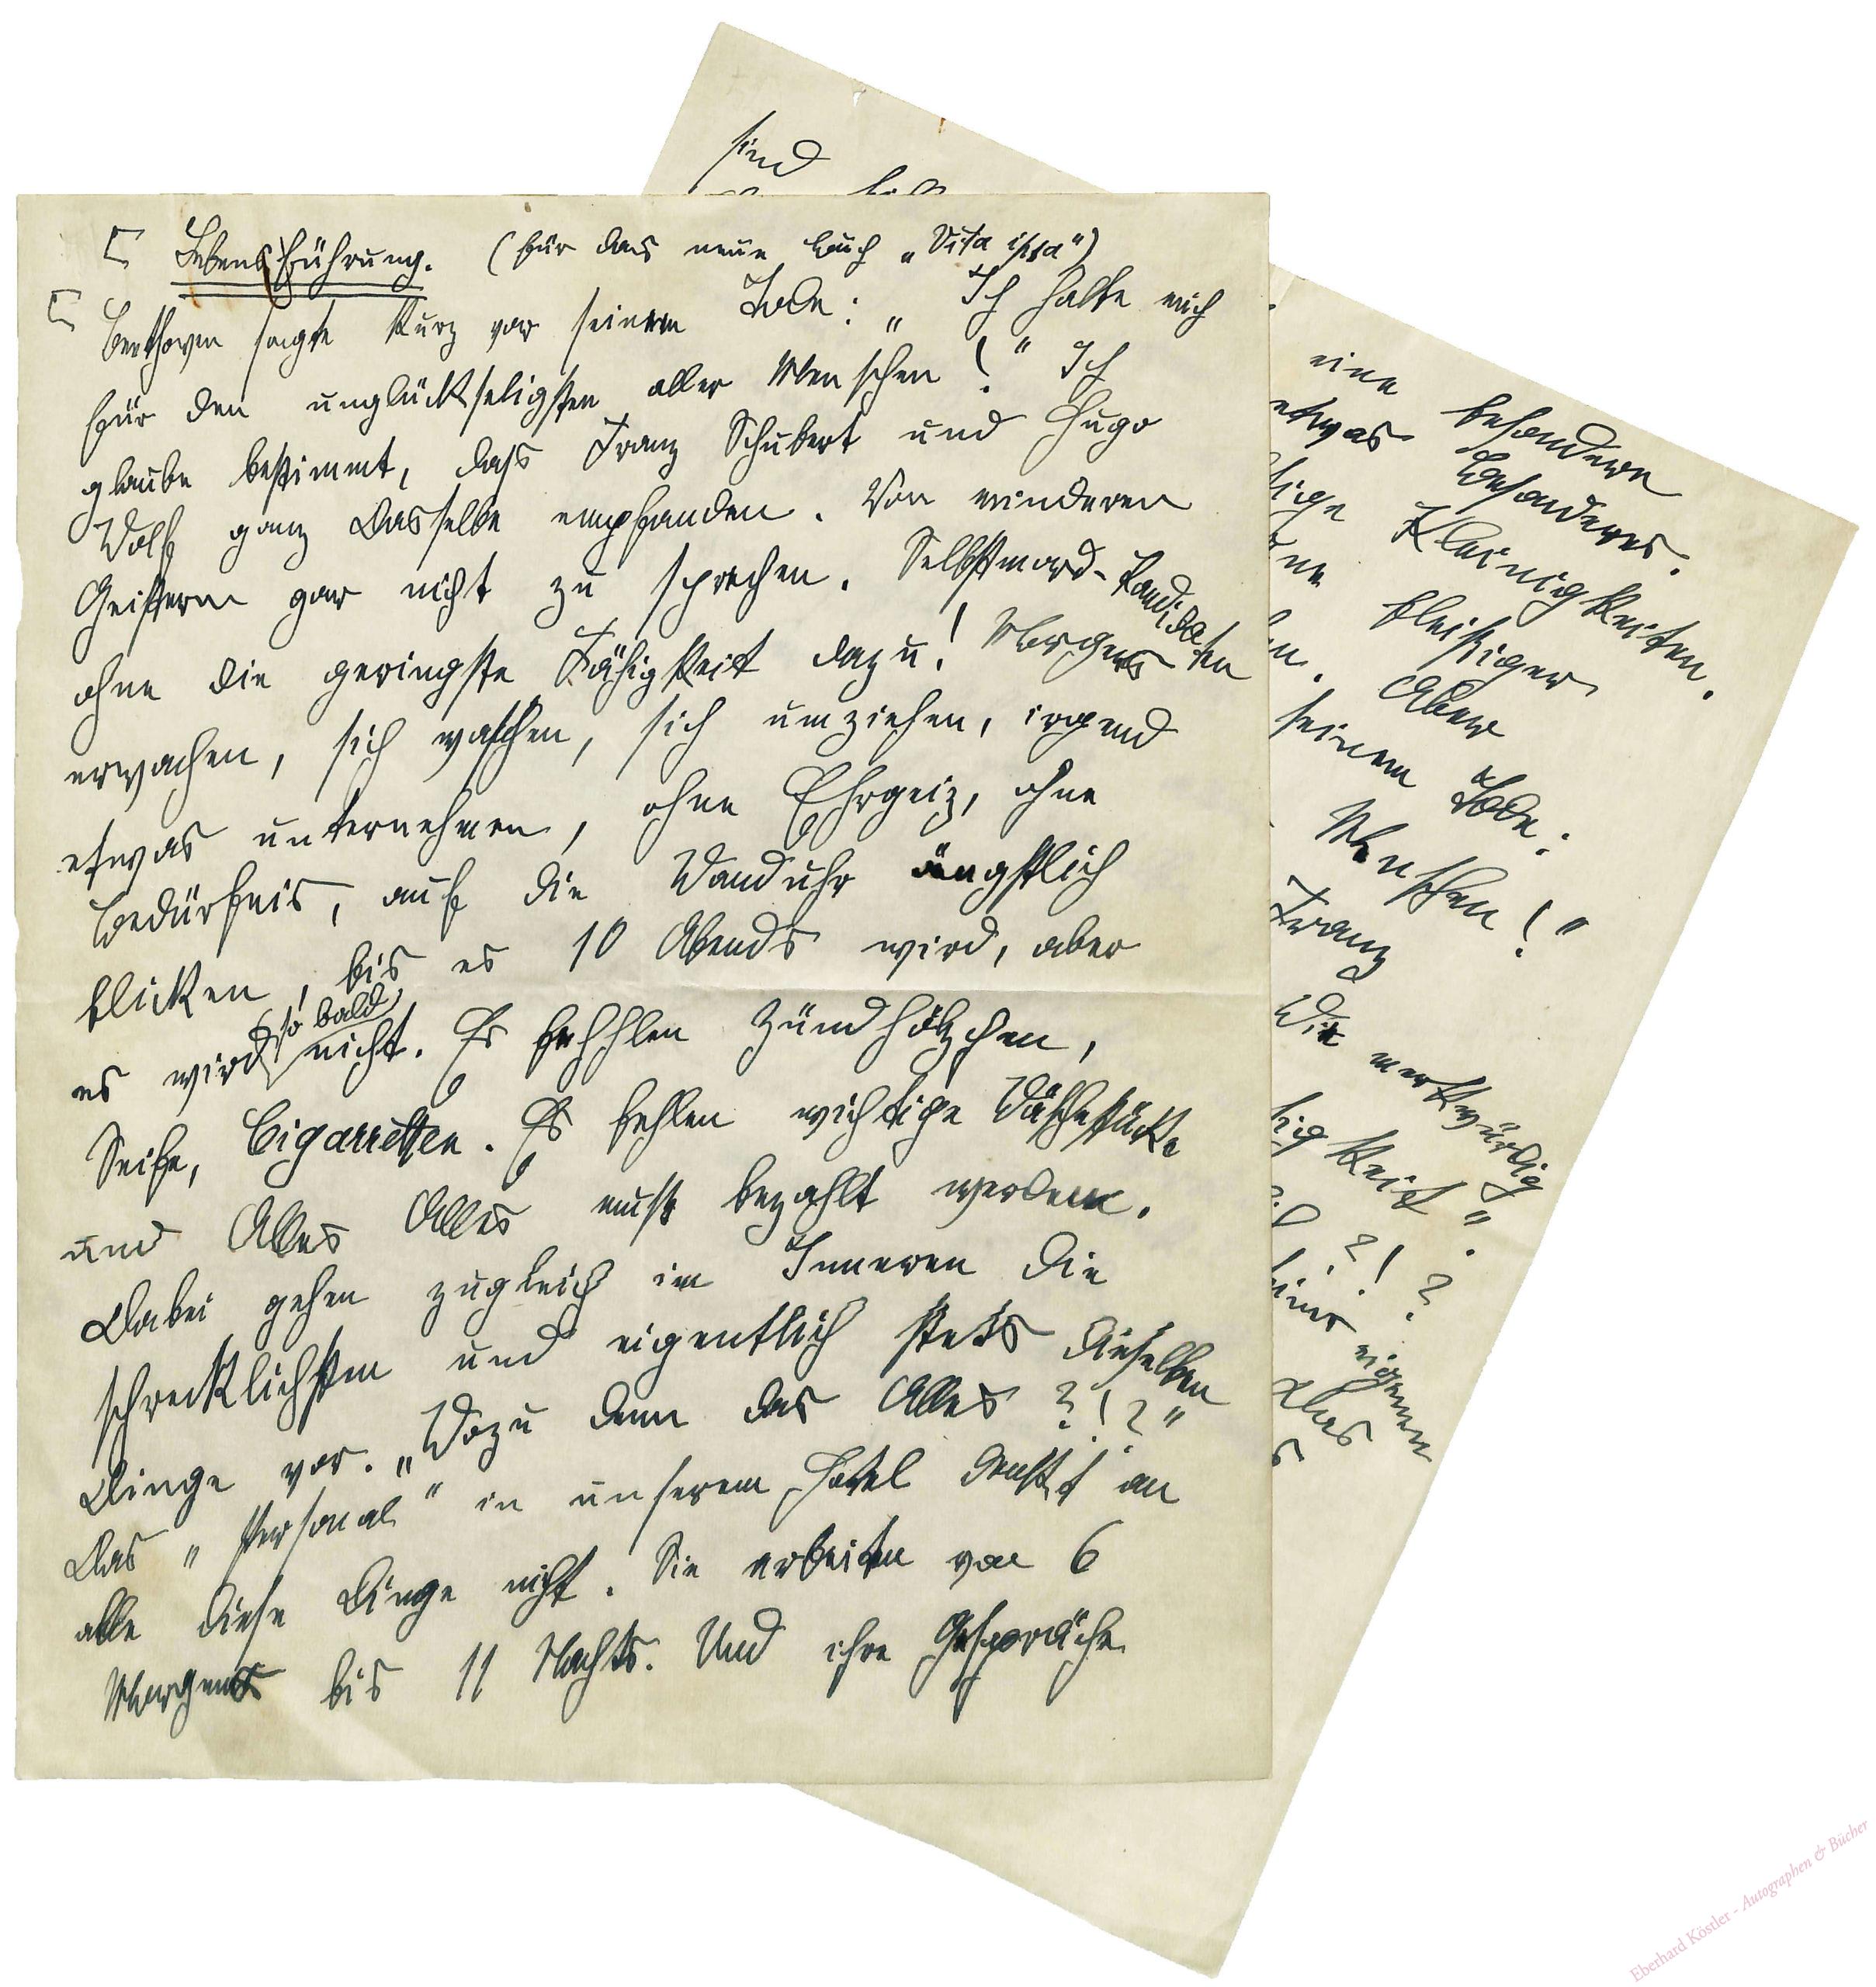 [ Lebensführung. (für das neue Buch „Vita ipsa")
[ Beethoven sagte kurz vor seinem Tode: „Ich halte mich
für den unglückseligsten aller Menschen!" Ich
glaube bestimmt, dass Franz Schubert und Hugo
Wolf ganz dasselbe empfanden. Von minderen
Geistern gar nicht zu sprechen. Selbstmord-Kandidaten
ohne die geringste Fähigkeit dazu! Morgens
erwachen, sich waschen, sich umziehen, irgend
etwas unternehmen, ohne Ehrgeiz, ohne
Bedürfnis, auf die Wanduhr ängstlich
blicken, bis es 10 Abends wird, aber
es wird so bald nicht. Es fehlen Zündhölzchen,
Seife, Cigarretten. Es fehlen wichtige Wäschestücke
und Alles Alles muss bezahlt werden.
Dabei gehen zugleich im Inneren die
schrecklichsten und eigentlich stets dieselben
Dinge vor. „Wozu denn das Alles?!?"
Das „Personal" in unserem Hotel denkt an
alle diese Dinge nicht. Sie arbeiten von 6
Morgens bis 11 Nachts. Und ihre Gespräche
sind
eine besondere
etwas Besonderes.
Kleinigkeiten.
fleißiger
Aber
seinem Tode:
Menschen!"
Franz
Die merkwürdig
keit".
?!?
einer eigenen
Eberhard Köstler - Autographen & Bücher